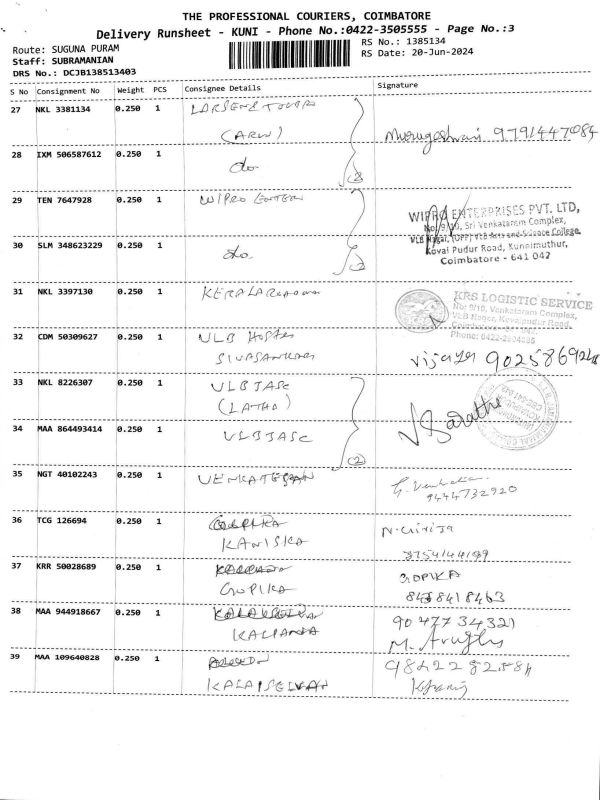 THE PROFESSIONAL COURIERS, COIMBATORE
Delivery Runsheet - KUNI - Phone No.:0422-3505555 - Page No.:3
Route: SUGUNA PURAM
RS No.: 1385134
Staff: SUBRAMANIAN
RS Date: 20-Jun-2024
DRS No.: DCJB138513403
S No Consignment No Weight PCS Consignee Details Signature
27 NKL 3381134 0.250 1
(ARW)
Murugeshwari 9791447084
28 IXM 506587612 0.250 1 do (2
29 TEN 7647928 0.250 1 WIPRO
WIPRO ENTERPRISES PVT. LTD,
No: 9/10, Sri Venkataram Complex,
VLB Nagar, (OPP) VLB Arts and Science College,
Kovai Pudur Road, Kuniamuthur,
Coimbatore - 641 042
30 SLM 348623229 0.250 1 do.
31 NKL 3397130 0.250 1
KRS LOGISTIC SERVICE
No: 9/10, Venkataram Complex,
VLB Nagar, Kovaipudur Road,
Phone: 0422-2604086
32 CDM 50309627 0.250 1 VLB HOSTEL
SIVASANKARI
33 NKL 8226307 0.250 1 VLBJASC
(LATHA)
34 MAA 864493414 0.250 1 VLBJASC (2)
35 NGT 40102243 0.250 1 VENKATESAN
9444732920
36 TCG 126694 0.250 1 GOPIKA
KANISKA
37 KRR 50028689 0.250 1
GOPIKA
GOPIKA
8458418463
38 MAA 944918667 0.250 1
KALPANA
9047734321
39 MAA 109640828 0.250 1
KALAISELVAN